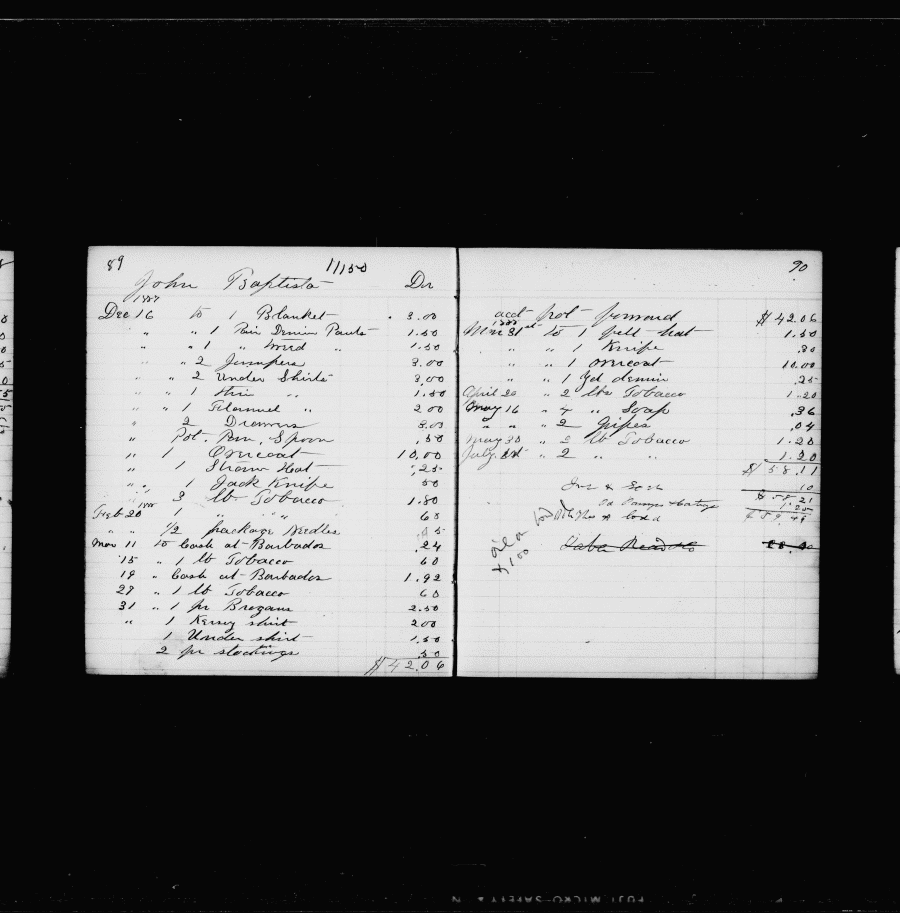 89 1/150
John Baptista Dr
1887
Dec 16 to 1 Blanket 3.00
" " 1 Pair Denim Pants 1.50
" " 1 " " 1.50
" " 2 Jumpers 3.00
" " 2 Under Shirts 3.00
" " 1 Thin " 1.50
" " 1 Flannel " 2 00
" 2 Drawers 3.00
" Pot. Pan, Spoon .50
" 1 Overcoat 10.00
" 1 Straw Hat .25
" " 1 Jack Knife 50
" 3 lb Tobacco 1.80
1888
Feb 20 1 " " " 60
" " 1/2 package Needles 05
Mar 11 to Cash at Barbados .24
15 " 1 lb Tobacco 60
19 " Cash at Barbados 1.92
27 " 1 lb Tobacco 60
31 " 1 pr Brogans 2.50
" 1 Kersey shirt 2 00
1 Under shirt 1.50
2 pr stockings .50
$42.06
90
acct fot forward $42.06
1888
Mar 31st to 1 felt hat 1.50
" " 1 Knife .30
" " 1 overcoat 10.00
" " 1 yd denim .25
April 20 " 2 lbs Tobacco 1.20
May 16 " 4 " Soap .36
" " " 2 pipes .04
May 30 " 2 lb Tobacco 1.20
July 1st " 2 " " 1.20
$58.11
10
$58.21
1.25
Taber Read &Co